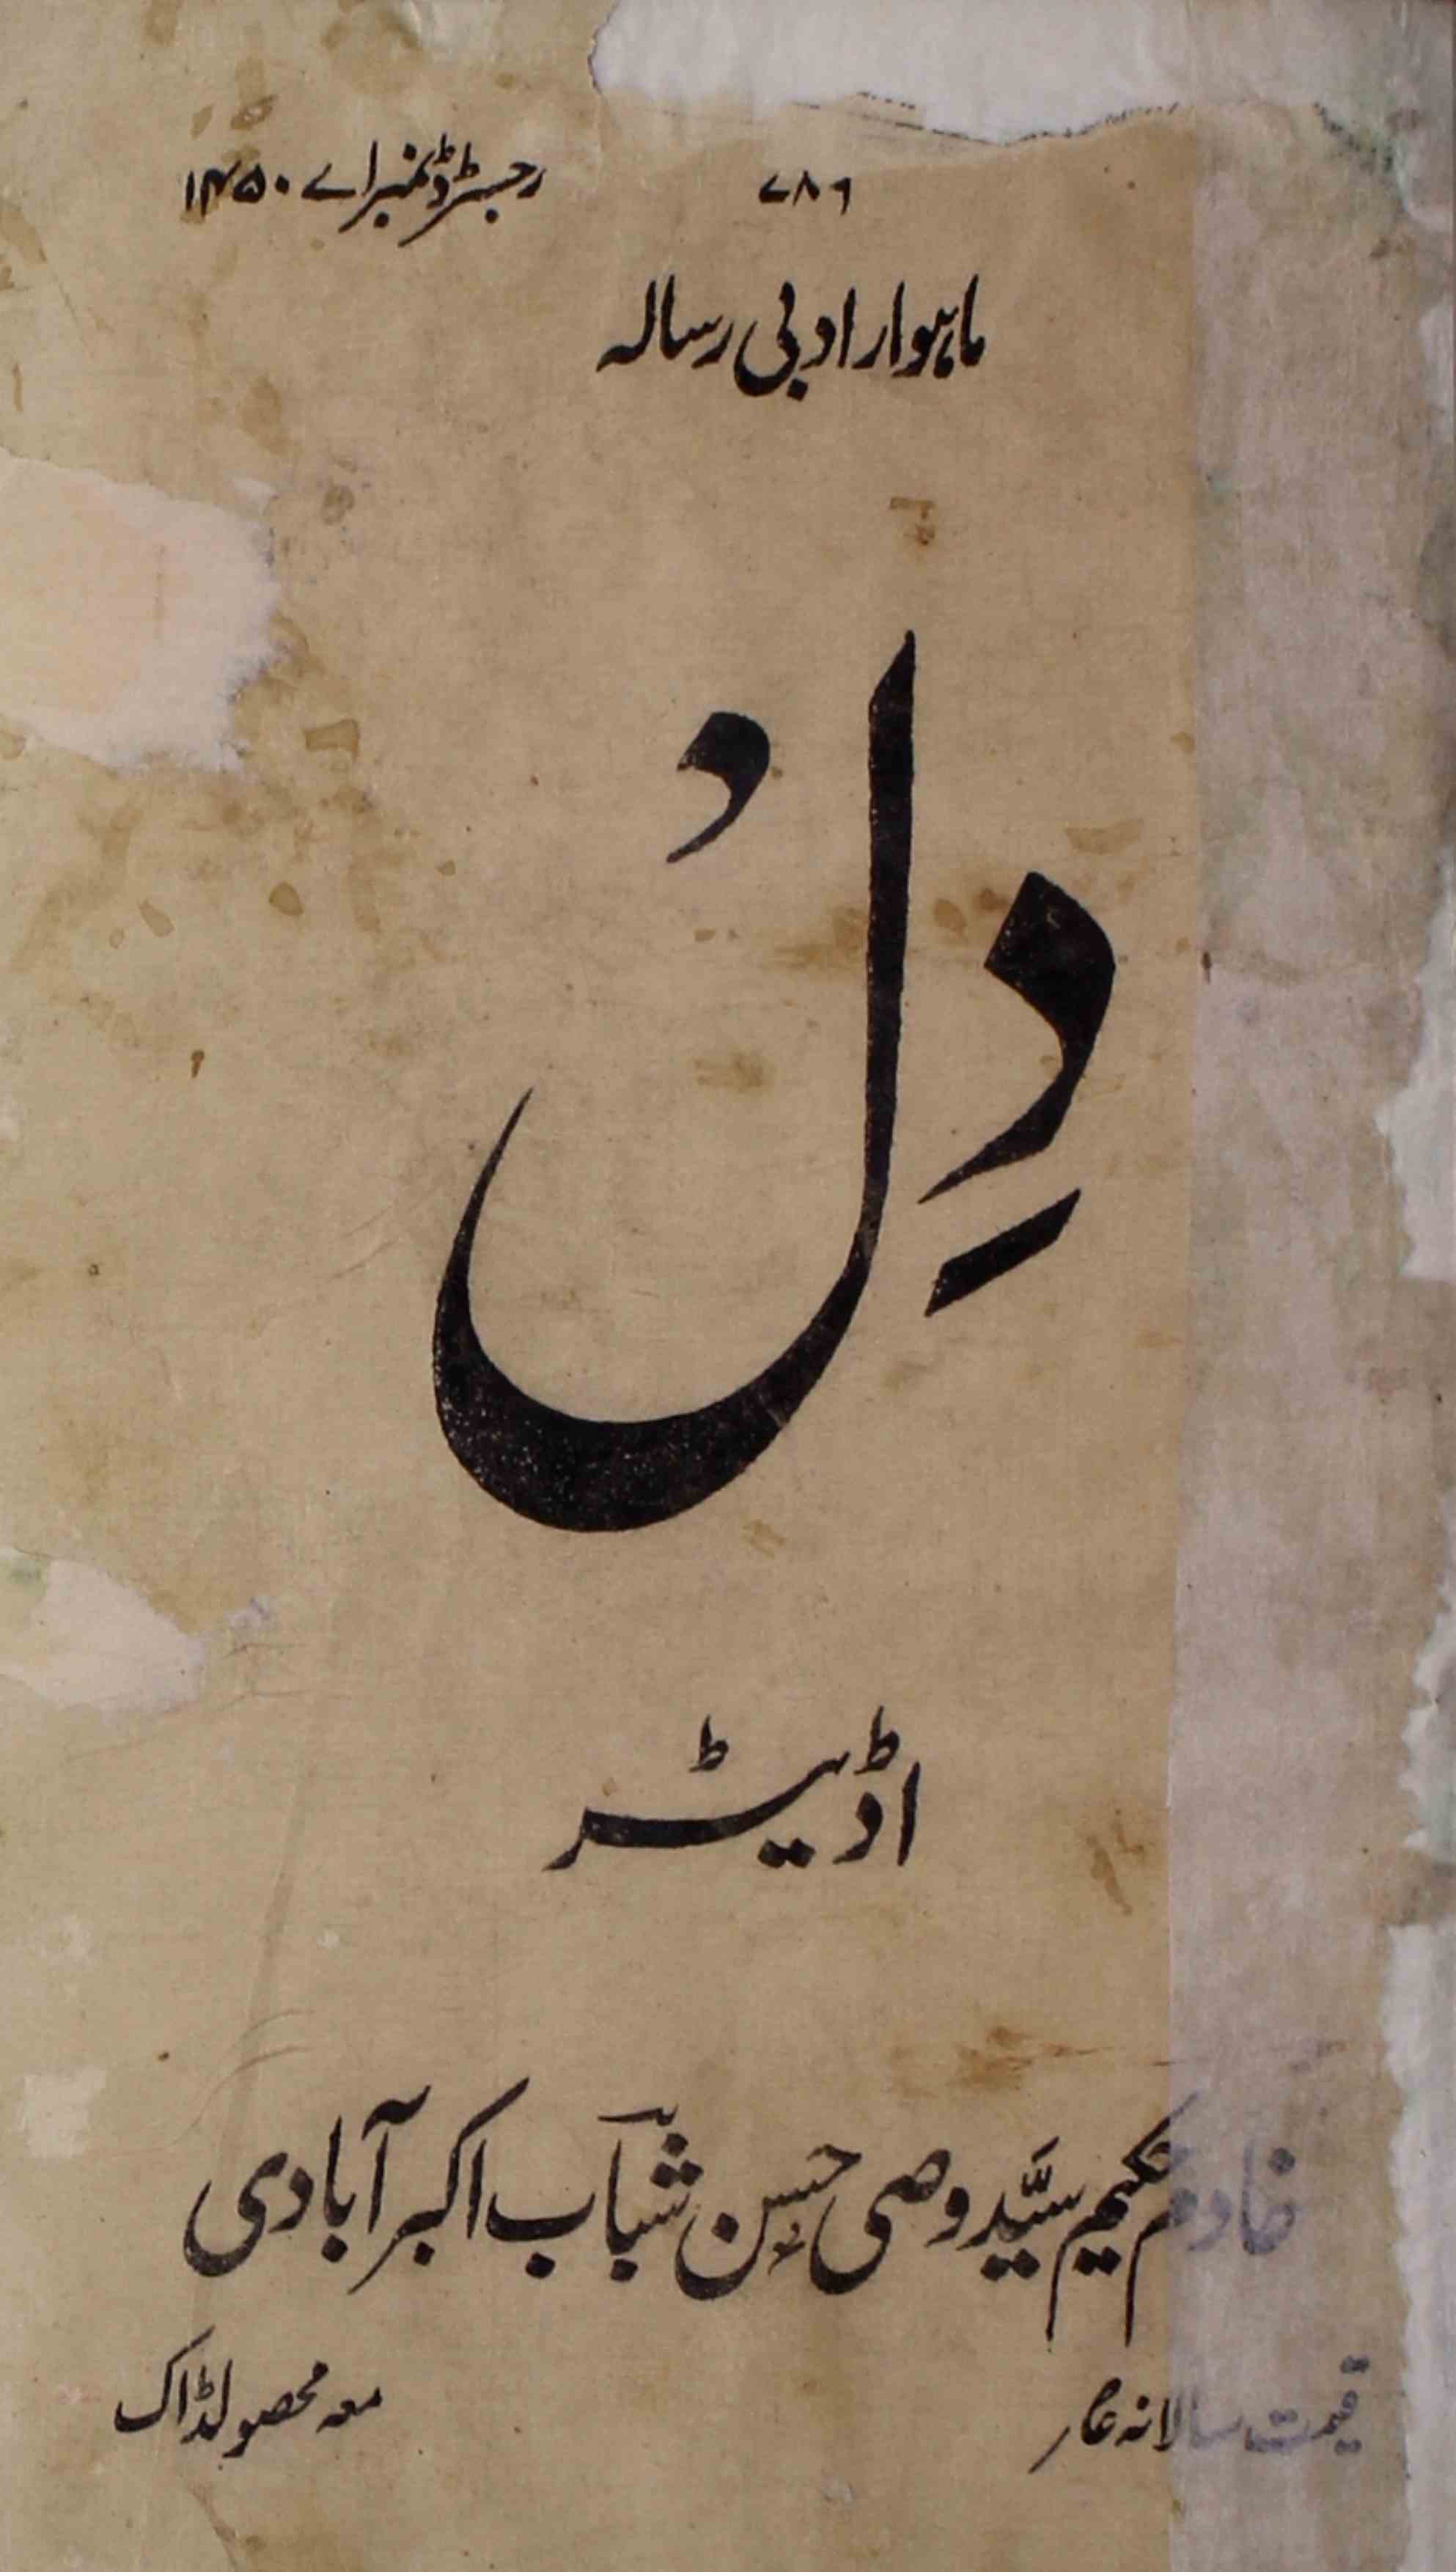 ۷۸۶ رجسٹرڈ نمبر اے ۱۴۵۰
ماہوار ادبی رسالہ
دِلْ
اڈیٹر
خادم حکیم سیّد وصی حسن شباب اکبر آبادی
قیمت سالانہ معہ محصولڈاک